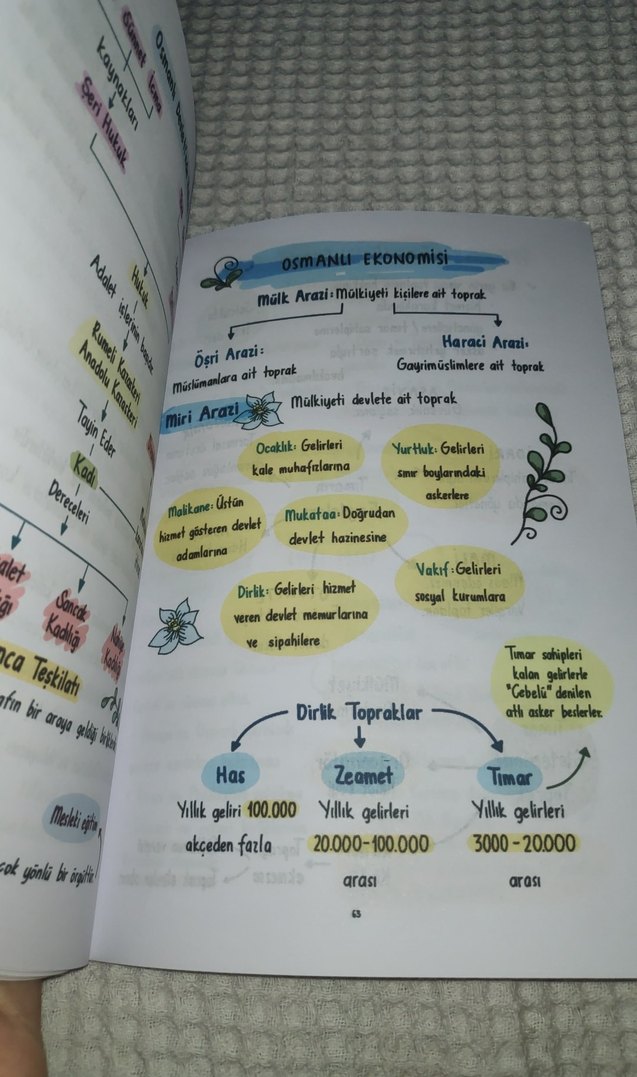 Sünnet
İcma
Kaynakları
Şeri Hukuk
Hukuk
Adalet işlerinin
Rumeli Kazaskeri
Anadolu Kazaskeri
Tayin Eder
Kadı
Dereceleri
Sancak
Kadılığı
Teşkilatı
bir araya geldiği
Mesleki eğitim
çok yönlü bir örgüttür
OSMANLI EKONOMİSİ
Mülk Arazi: Mülkiyeti kişilere ait toprak
Öşri Arazi:
Müslümanlara ait toprak
Haraci Arazi:
Gayrimüslimlere ait toprak
Miri Arazi
Mülkiyeti devlete ait toprak
Ocaklık: Gelirleri
kale muhafızlarına
Yurtluk: Gelirleri
sınır boylarındaki
askerlere
Malikane: Üstün
hizmet gösteren devlet
adamlarına
Mukataa: Doğrudan
devlet hazinesine
Vakıf: Gelirleri
sosyal kurumlara
Dirlik: Gelirleri hizmet
veren devlet memurlarına
ve sipahilere
Tımar sahipleri
kalan gelirlerle
"Cebelü" denilen
atlı asker beslerler.
Dirlik Topraklar
Has
Yıllık geliri 100.000
akçeden fazla
Zeamet
Yıllık gelirleri
20.000-100.000
arası
Tımar
Yıllık gelirleri
3000-20.000
arası
63